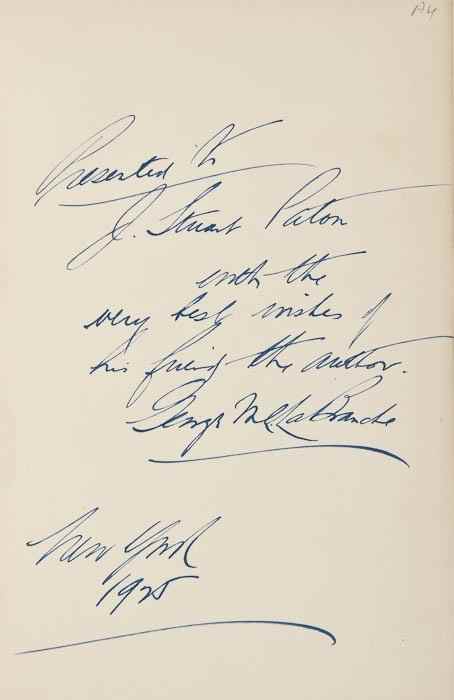 Presented to
J. Stuart Paton
with the
very best wishes of
his friend the author.
George M L La Branche
New York
1925